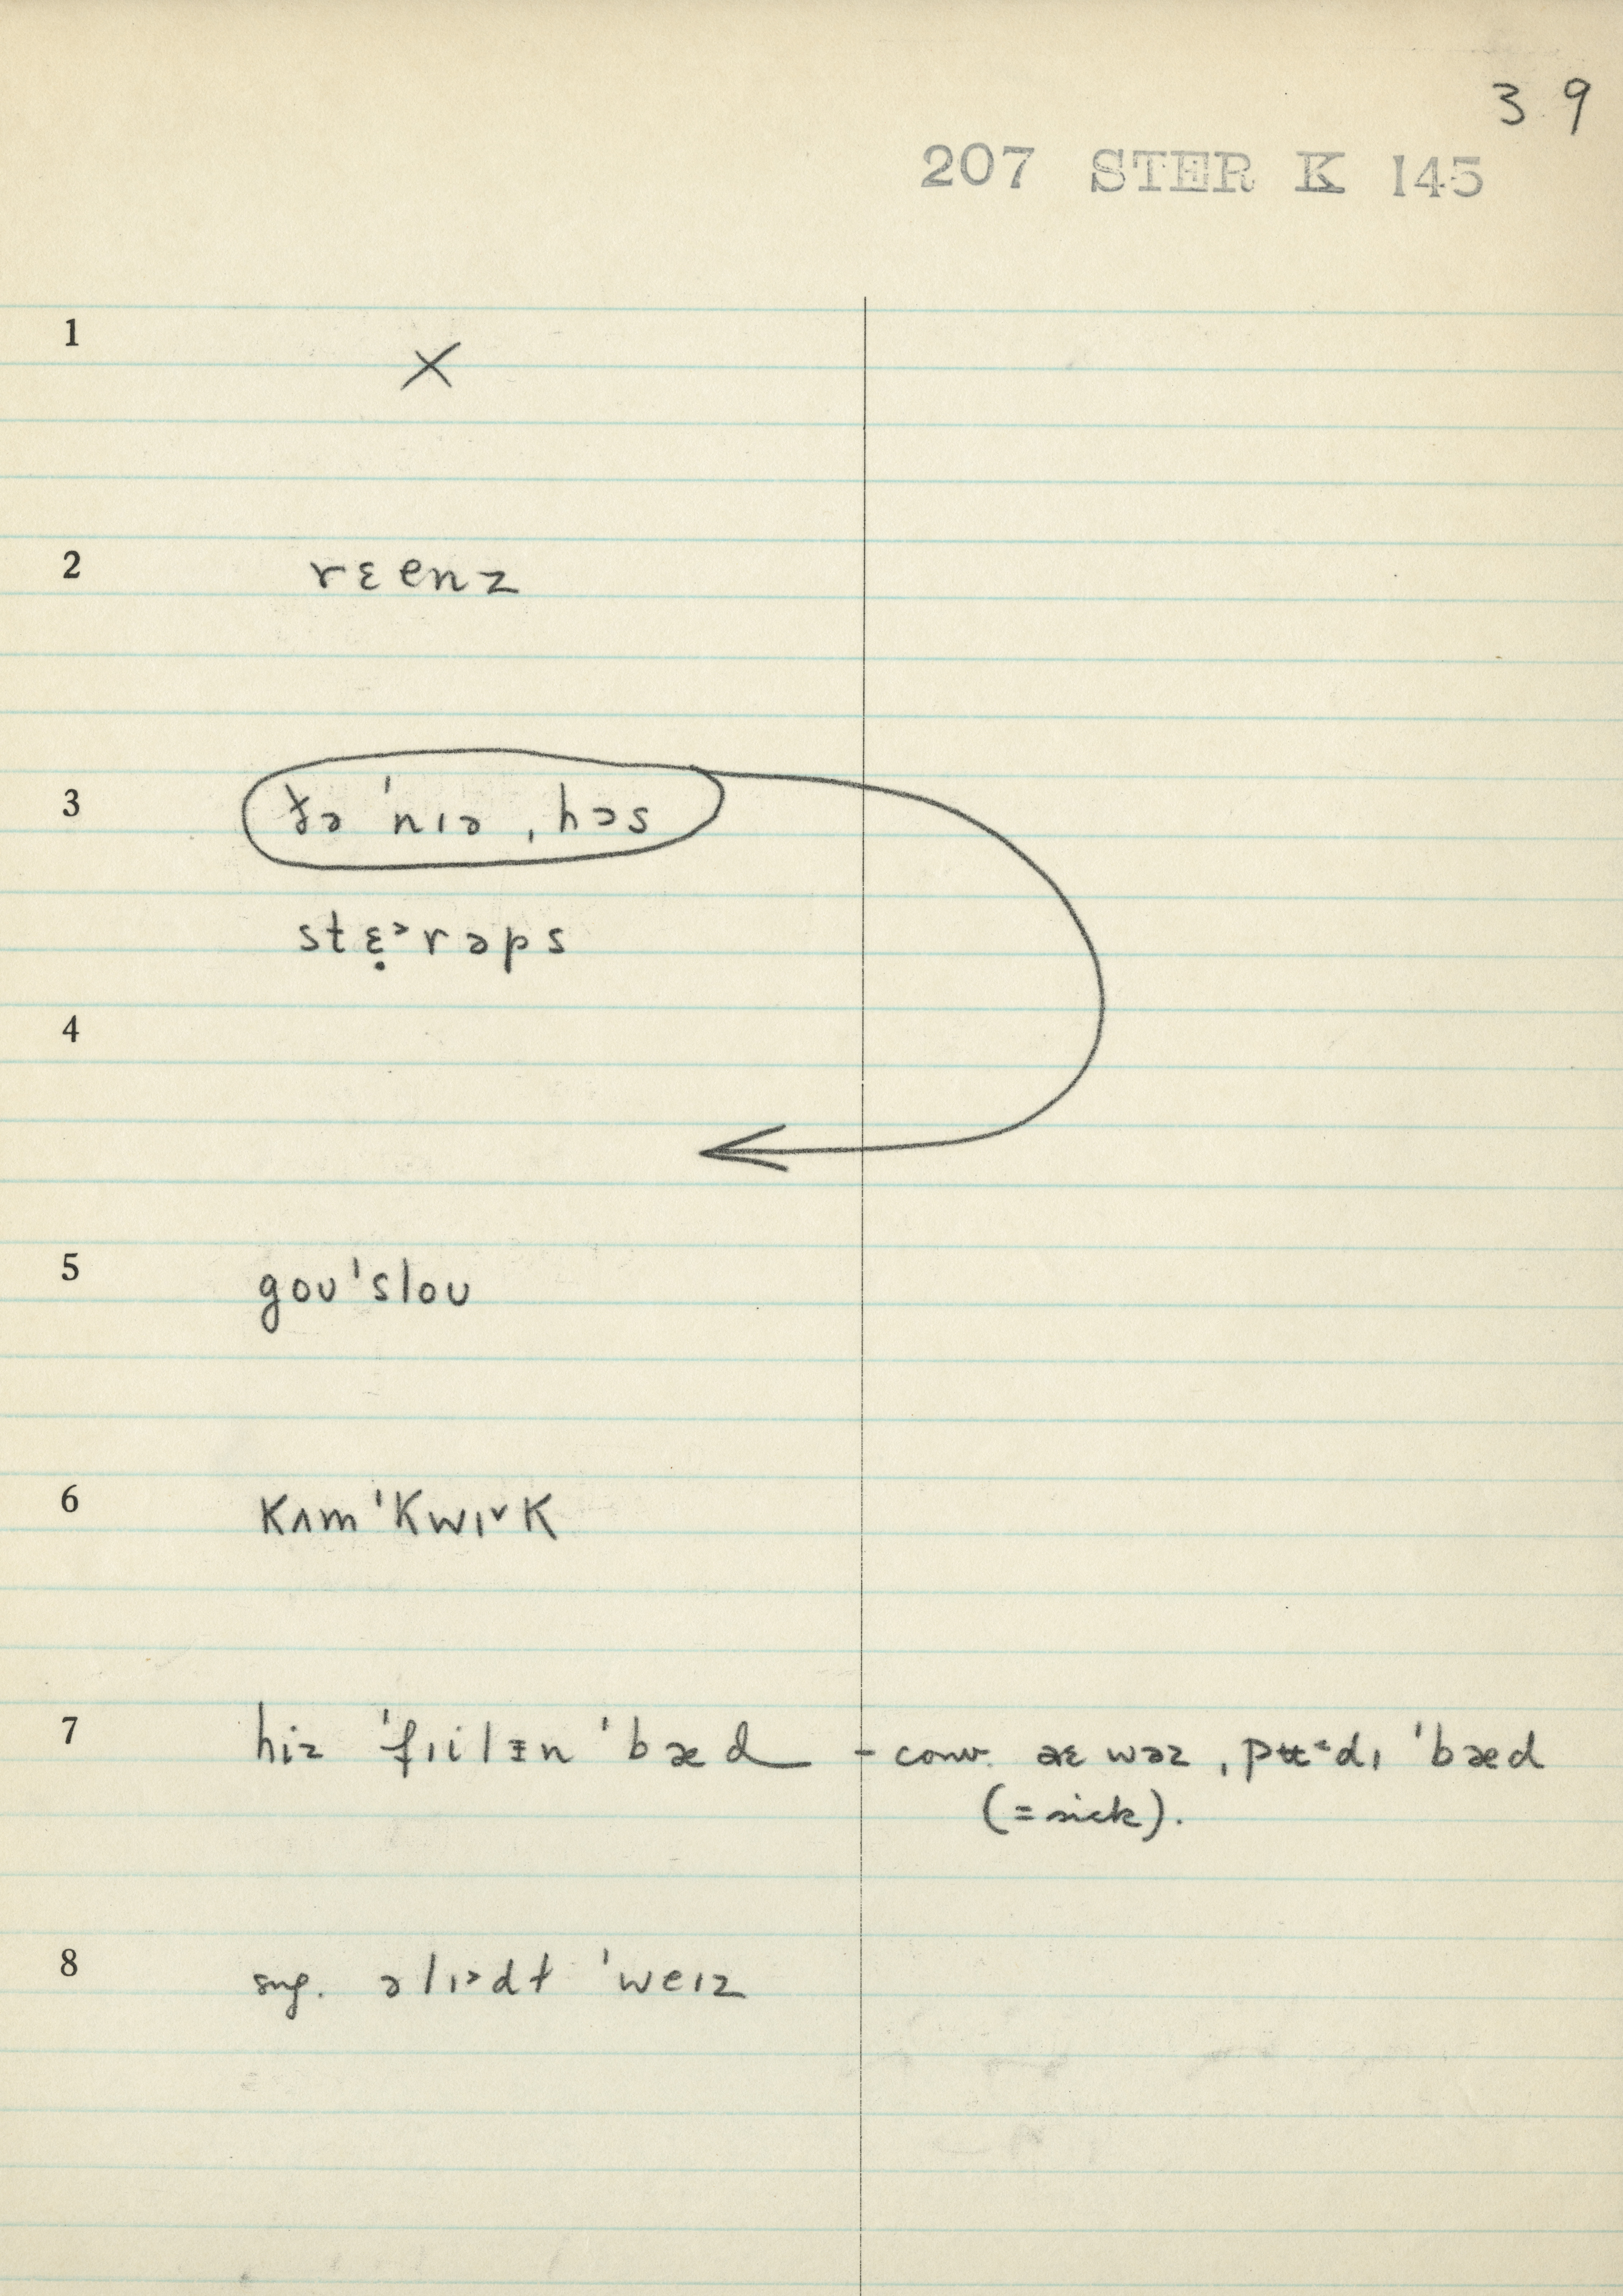 39
207 STER K 145
1 ×
2 rɛenz
3 ðə ˈnɪə ˌhɔs
stɛ̣ᵊrəps
4
5 goʊˈsloʊ
6 kʌmˈkwɪ˅k
7 hiz ˈfɪilɪn ˈbæd – conv. aɛ wəz ˌpɪdɪ ˈbæd
(= sick).
8 sug. əlɪ˃dt ˈweɪz